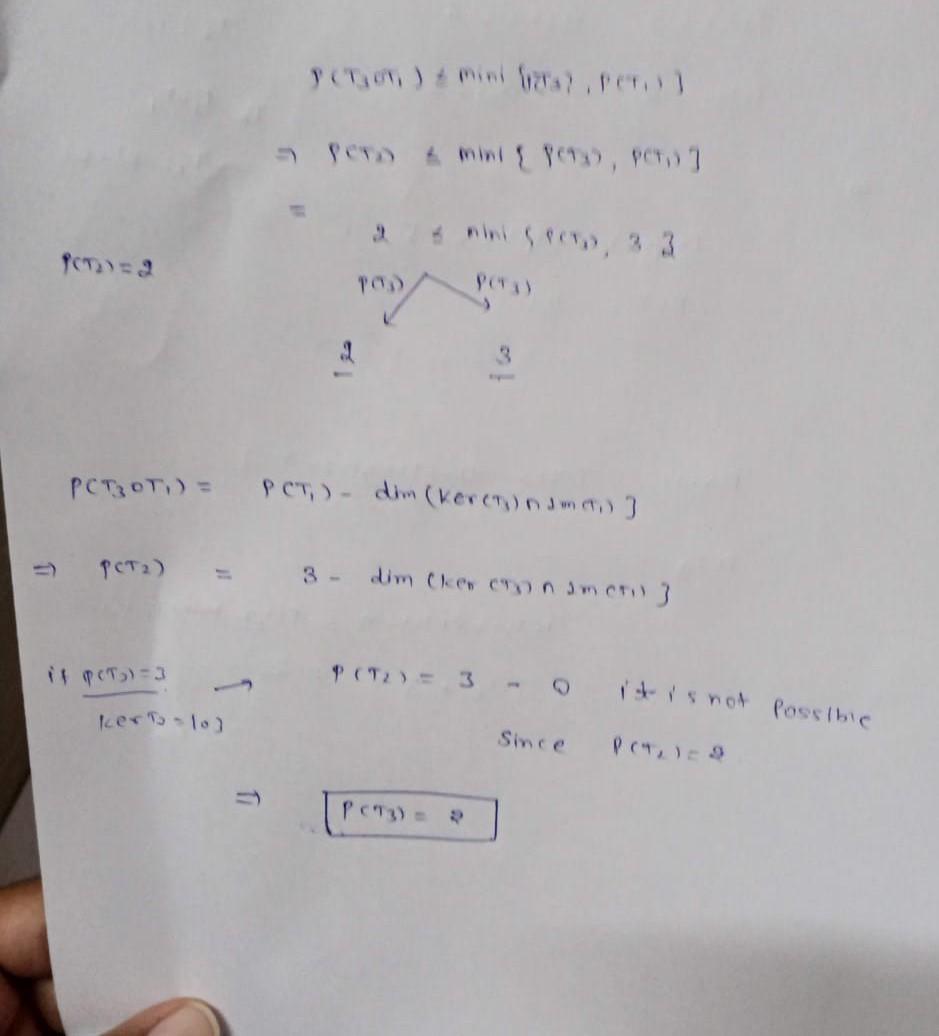 ρ(T₃oT₁) ≤ mini {ρ(T₃), ρ(T₁)}
⇒ ρ(T₂) ≤ mini { ρ(T₃), ρ(T₁) }
=
2 ≤ mini { ρ(T₃), 3 }
ρ(T₂) = 2
ρ(T₃) ρ(T₃)
2 3
ρ(T₃oT₁) = ρ(T₁) - dim (Ker(T₃) ∩ Im(T₁) }
⇒ ρ(T₂) = 3 - dim (ker (T₃) ∩ Im(T₁) }
if ρ(T₃) = 3 → ρ(T₂) = 3 - 0 it is not Possible
KerT₃ = {0} Since ρ(T₂) = 2
⇒ ρ(T₃) = 2